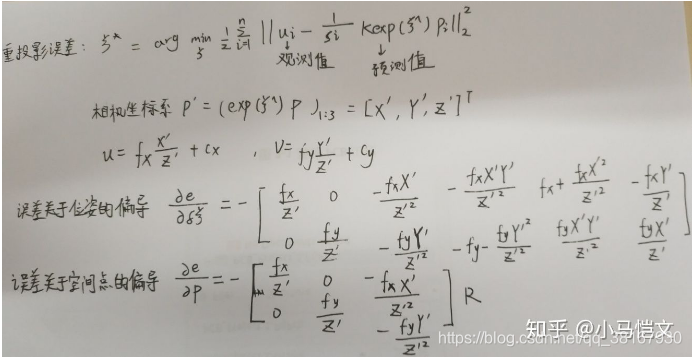 重投影误差: ξ* = arg min_ξ 1/2 Σ_{i=1}^{n} ||ui - 1/si K exp(ξ^) Pi||₂²
观测值 预测值
相机坐标系 P' = (exp(ξ^) P)_{1:3} = [X', Y', Z']^T
u = fx X'/Z' + cx , V = fy Y'/Z' + cy
误差关于位姿的偏导 ∂e/∂δξ = - [ fx/Z' 0 -fxX'/Z'² -fxX'Y'/Z'² fx+fxX'²/Z'² -fxY'/Z'
0 fy/Z' -fyY'/Z'² -fy-fyY'²/Z'² fyX'Y'/Z'² fyX'/Z' ]
误差关于空间点的偏导 ∂e/∂P = - [ fx/Z' 0 -fxX'/Z'²
0 fy/Z' -fyY'/Z'² ] R
知乎 @小马恺文
https://blog.csdn.net/qq_38167930